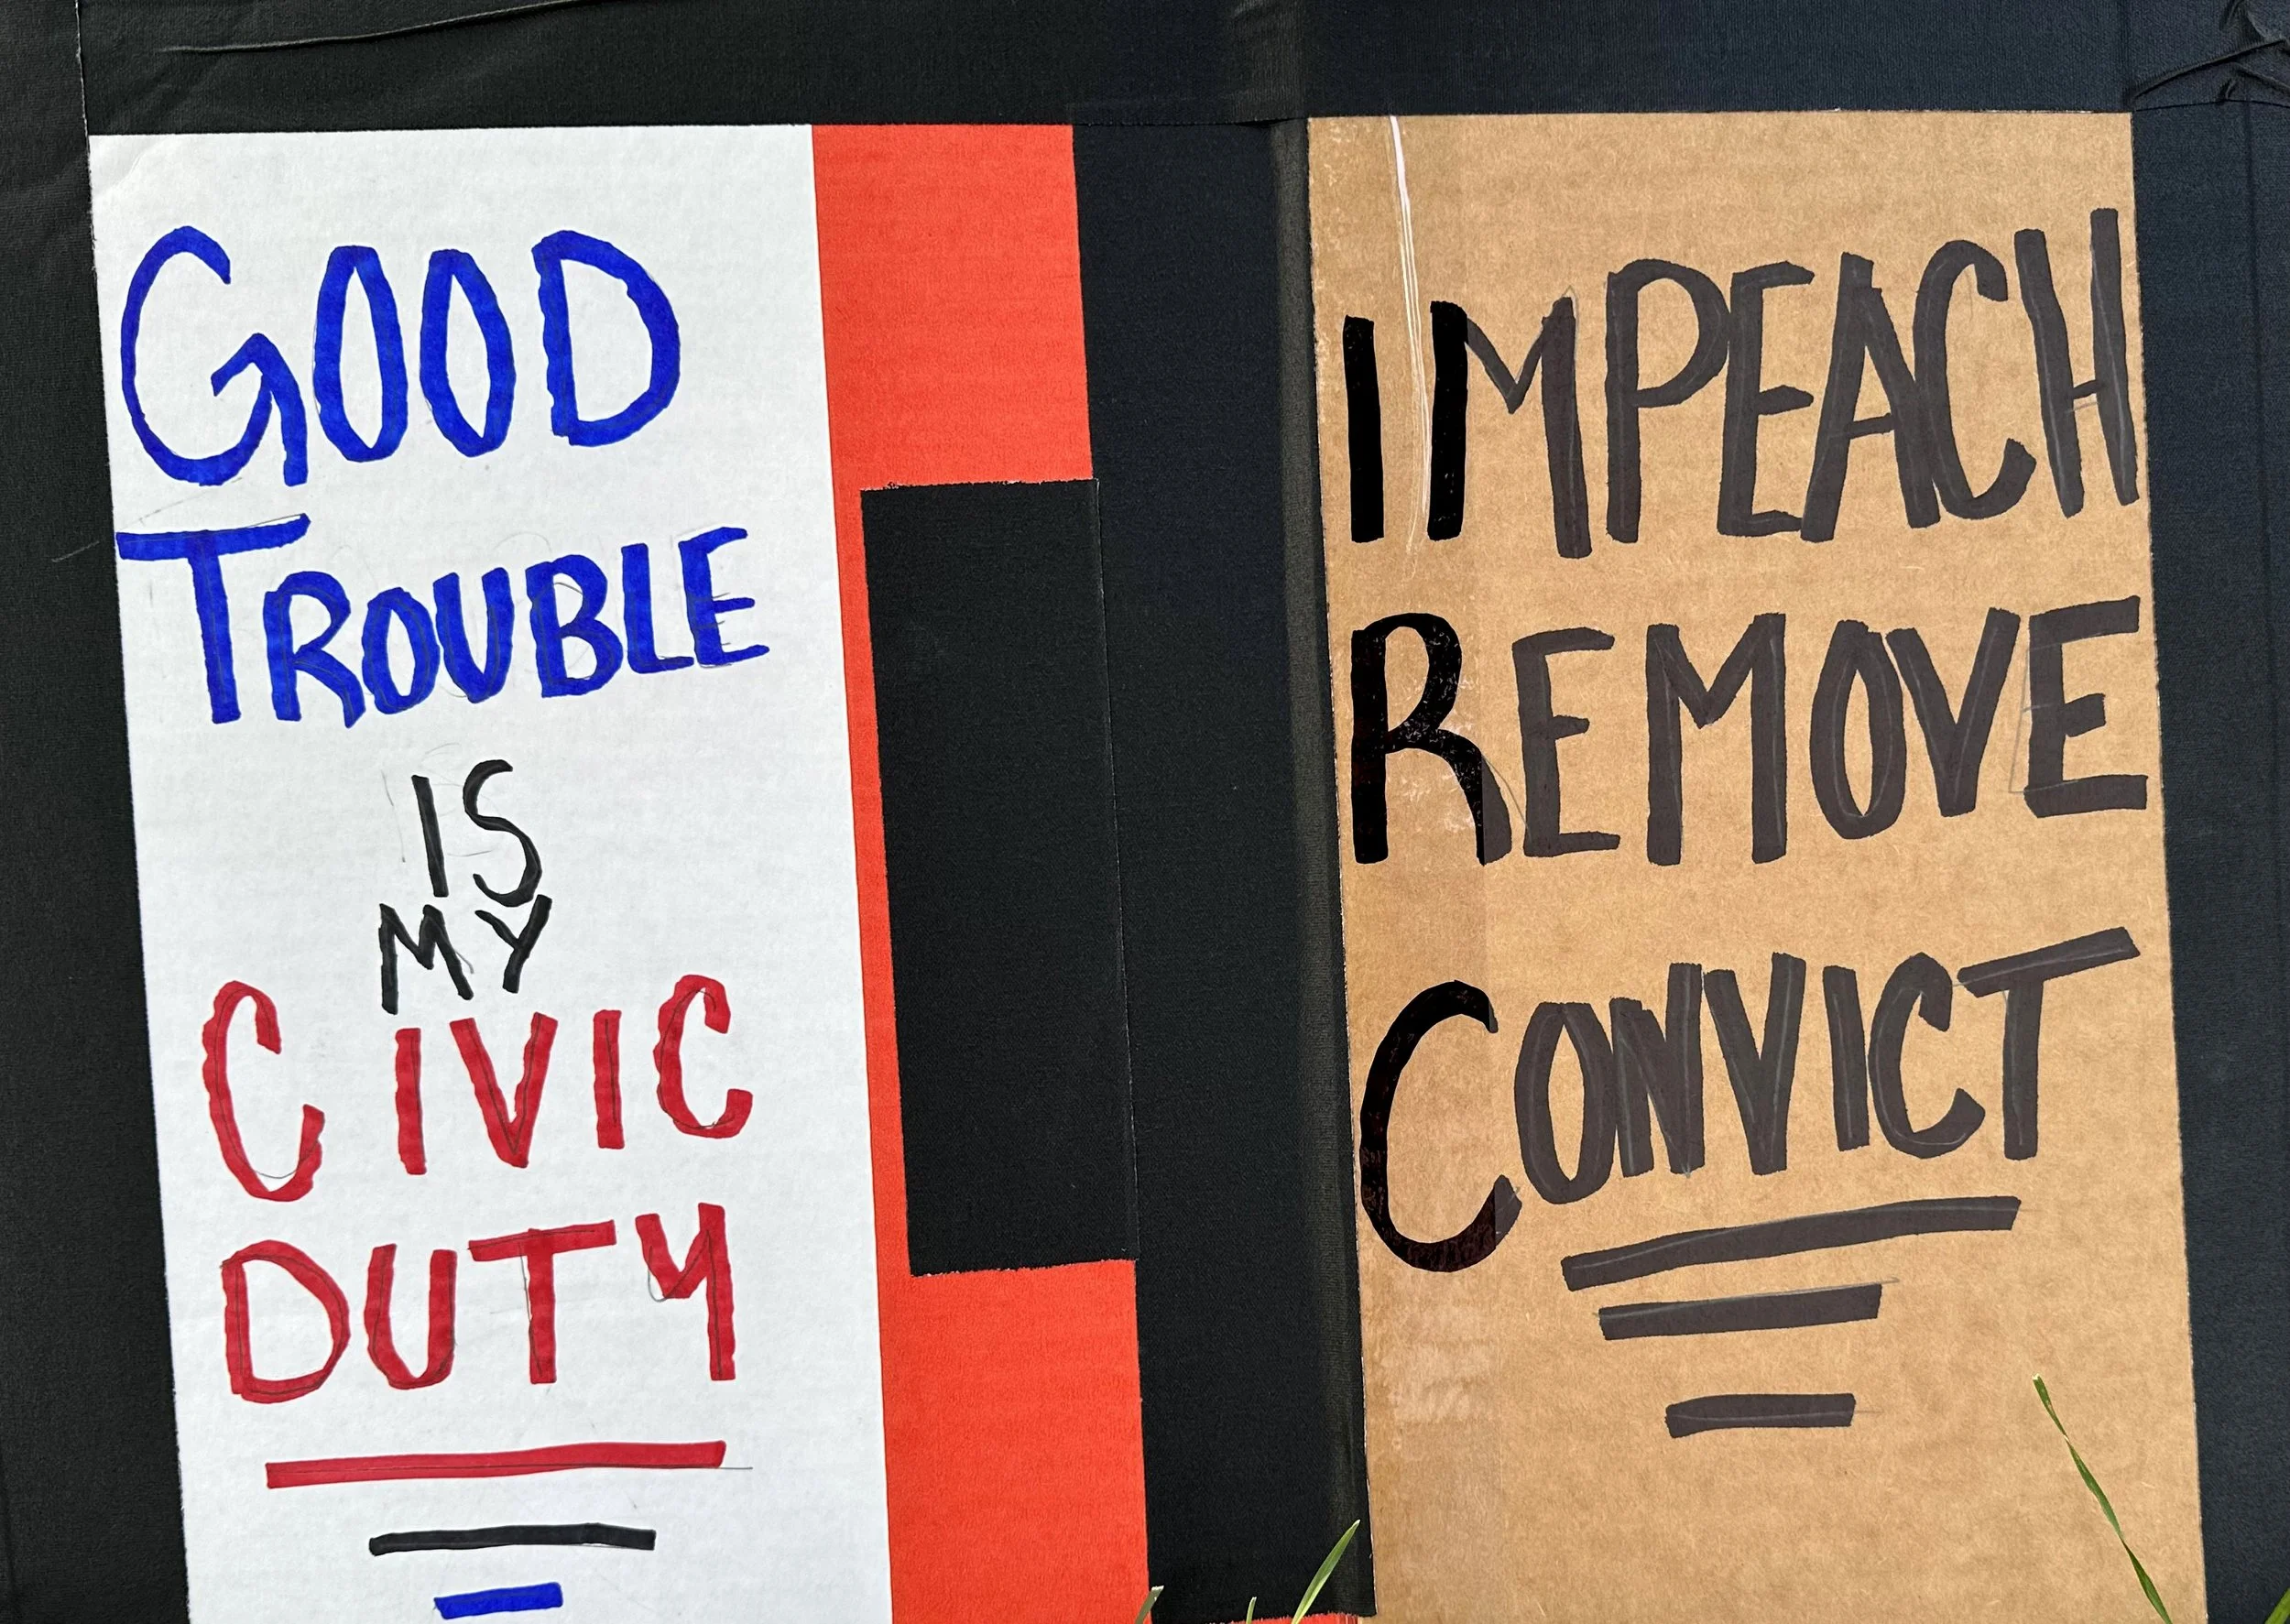 GOOD
TROUBLE
IS
MY
CIVIC
DUTY
IMPEACH
REMOVE
CONVICT